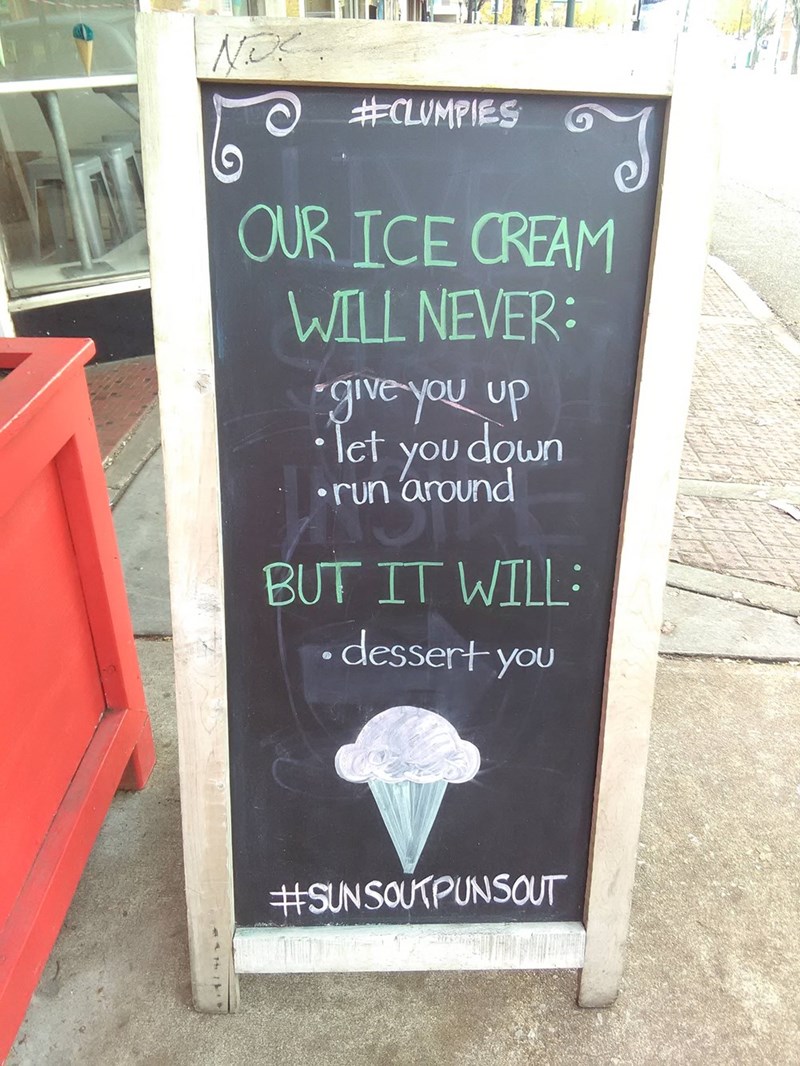 N.O.C.
#CLUMPIES
OUR ICE CREAM
WILL NEVER:
• give you up
• let you down
• run around
BUT IT WILL:
• dessert you
#SUNSOUTPUNSOUT